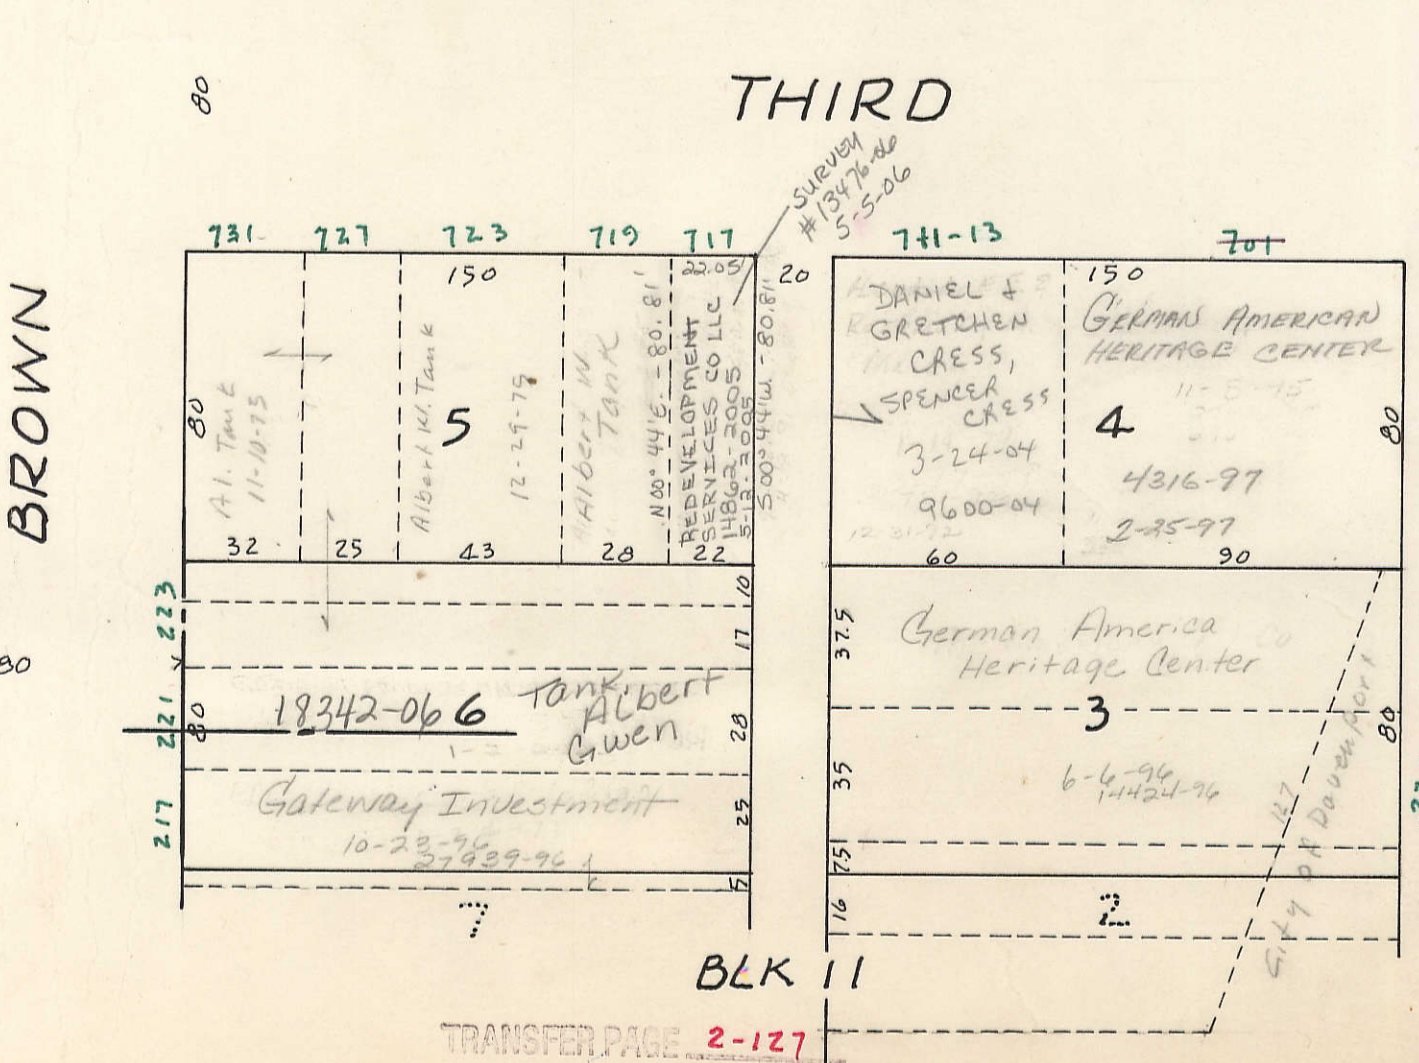 80
THIRD
SURVEY
#13476-06
5-5-06
BROWN
731
727
723
719
717
711-13
701
150
22.05'
20
150
80
Al. Tank
11-10-75
Albert W. Tank
5
12-29-79
Albert W
Tank
N 00° 44' E. - 80.81'
REDEVELOPMENT
SERVICES CO LLC
14862-2005
5-12-2005
S 00° 44' W. - 80.81'
DANIEL &
GRETCHEN
CRESS,
SPENCER
CRESS
3-24-04
9600-04
GERMAN AMERICAN
HERITAGE CENTER
4
4316-97
2-25-97
80
32
25
43
28
22
60
90
223
10
17
80
221
80
18342-06 6
Tank,
Albert
Gwen
28
217
Gateway Investment
10-23-96
27939-96
25
5
7
37.5
German America
Heritage Center
3
80
35
6-6-96
14424-96
127
City of Davenport
7.5
16
2
BLK 11
TRANSFER PAGE 2-127